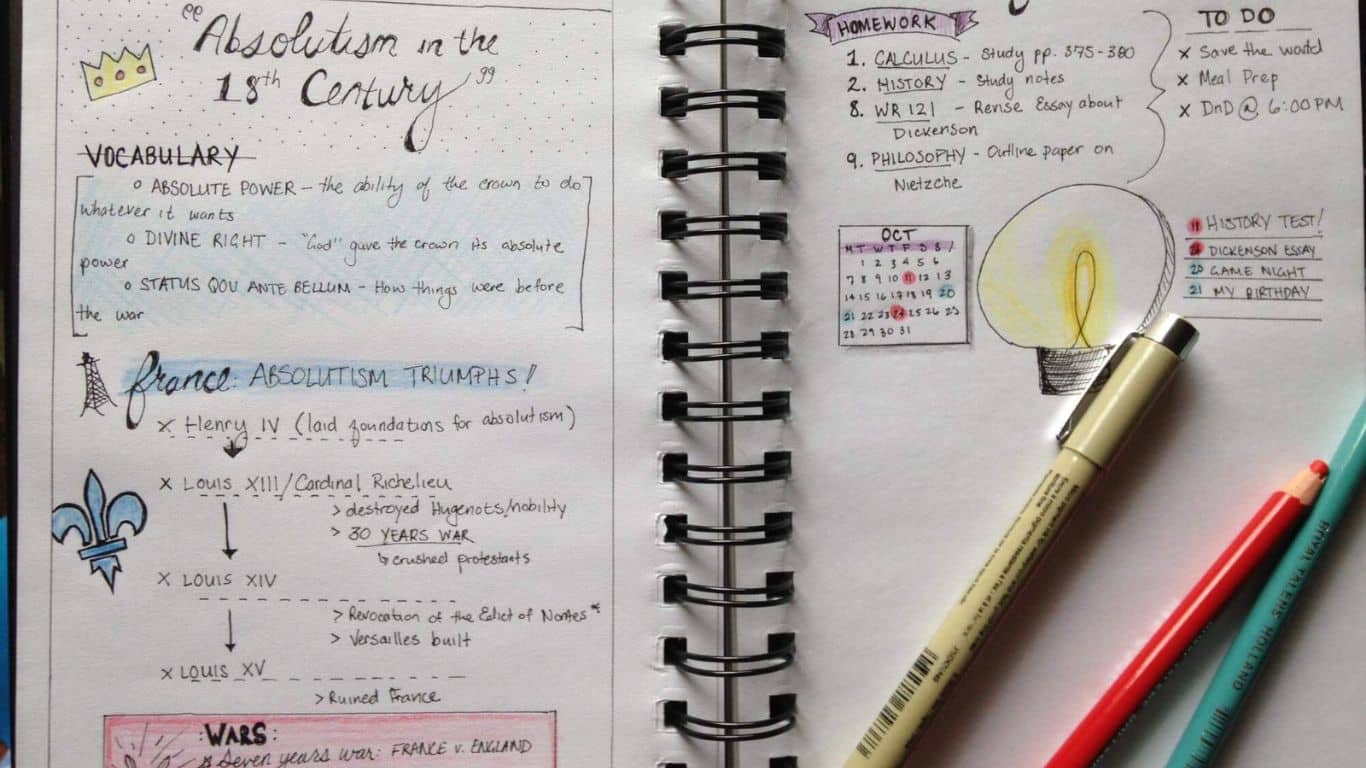 "Absolutism in the
18th Century"
VOCABULARY
° ABSOLUTE POWER – the ability of the crown to do
whatever it wants
° DIVINE RIGHT – "God" gave the crown its absolute
power
° STATUS QOU ANTE BELLUM – How things were before
the war
france: ABSOLUTISM TRIUMPHS!
x Henry IV (laid foundations for absolutism)
x LOUIS XIII/Cardinal Richelieu
> destroyed Hugenots/nobility
> 30 YEARS WAR
↳ crushed protestants
x LOUIS XIV
> Revocation of the Edict of Nantes*
> Versailles built
x LOUIS XV
> Ruined France
:WARS:
Seven years war: FRANCE V. ENGLAND
HOMEWORK
1. CALCULUS – Study pp. 375-380
2. HISTORY – Study notes
8. WR 121 – Revise Essay about
Dickenson
9. PHILOSOPHY – Outline paper on
Nietzche
TO DO
x Save the world
x Meal Prep
x DnD @ 6:00 PM
OCT
M T W T F S S
1 2 3 4 5 6
7 8 9 10 11 12 13
14 15 16 17 18 19 20
21 22 23 24 25 26 25
28 29 30 31
11 HISTORY TEST!
24 DICKENSON ESSAY
20 GAME NIGHT
21 MY BIRTHDAY
ROYAL TALENS HOLLAND